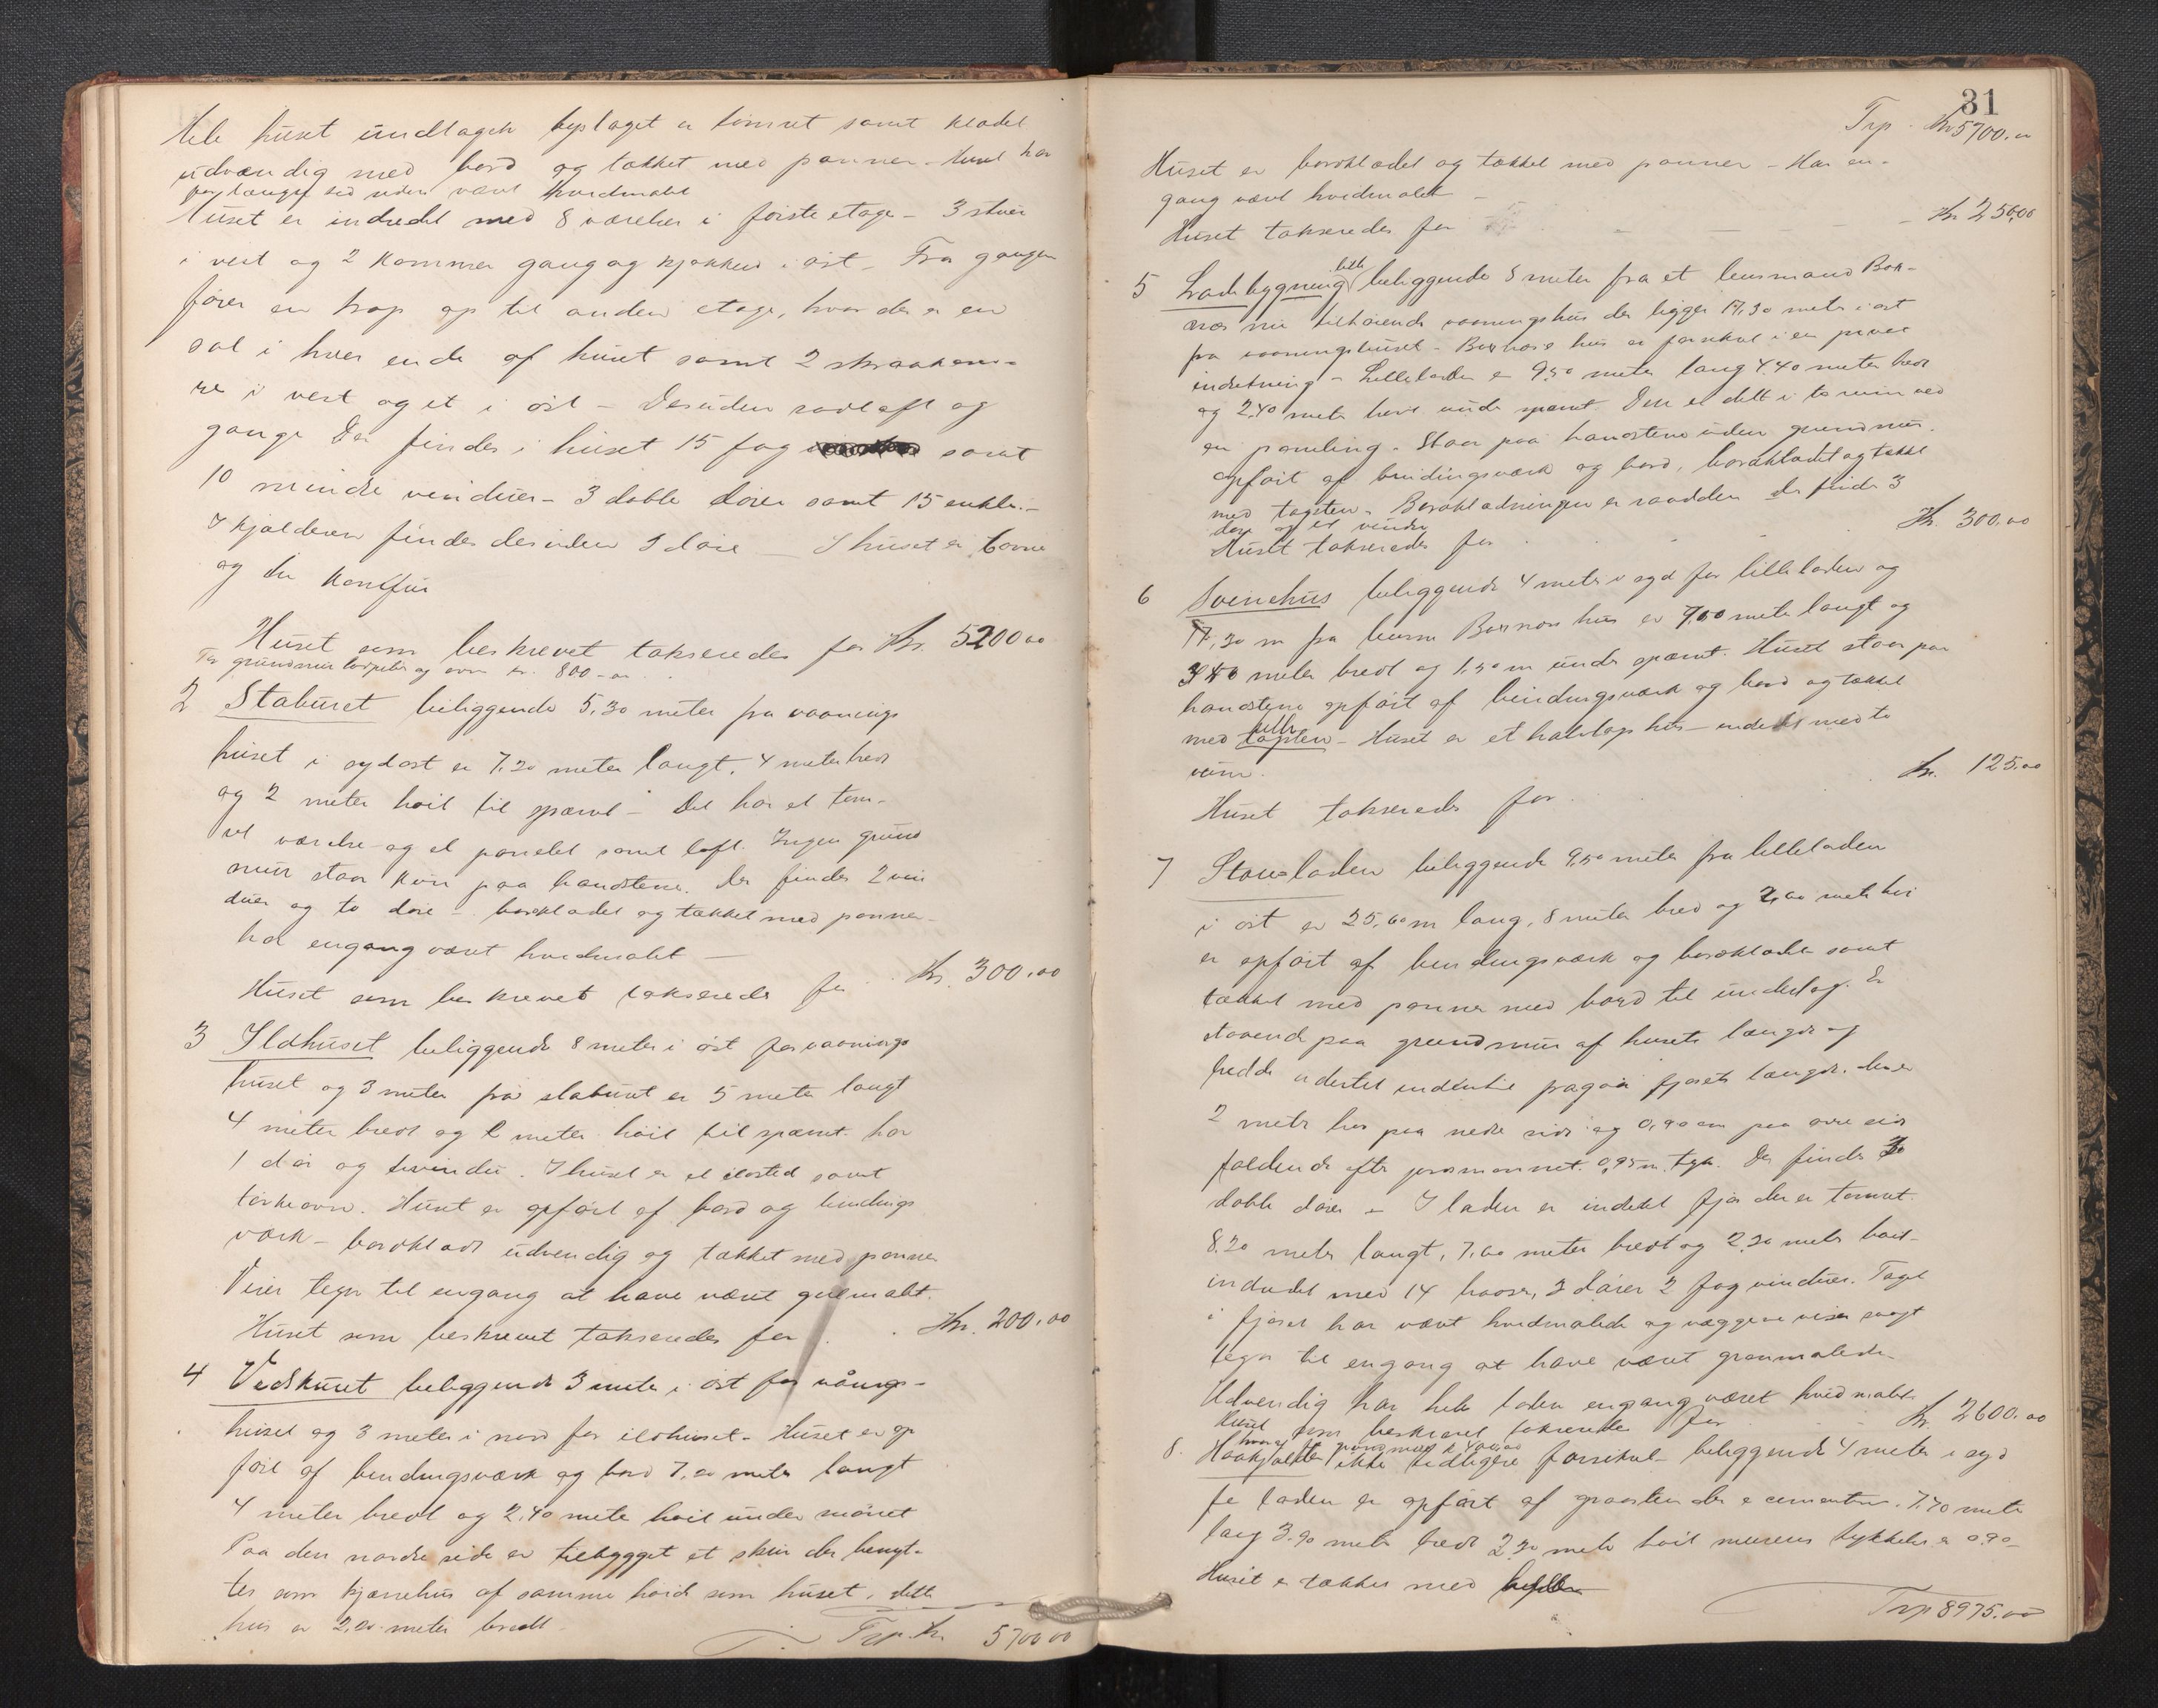 Hele huset undtagen bislaget er tømret samt klædt
udvændig med bord og tækket med panner - Huset har
for længe sid uden været hvidmalet
Huset er indredet med 8 værelser i første etage - 3 stuer
i vest og 2 kammer gang og kjøkken i øst - Fra gangen
fører en trap op til anden etage, hvor der er en
sal i hver ende af huset samt 2 skraakam-
re i vest og et i øst - Desuden
gange Der findes i huset 15 fag samt
10 mindre vinduer - 3 doble dører samt 15 enkle. -
I kjælderen findes desuden 1 døre - I huset er
og
Huset som beskrevet takseredes for Kr. 5200.00
For grundmur og ovn kr. 800-00
2 Staburet beliggende 5,30 meter fra vaanings
huset i sydøst er 7.20 meter langt, 4 meter bred
og 2 meter høit til spærret - Det har et tøm-
ret værelse og et panelet samt loft. Ingen grund
mur staar kun paa handstene. Der findes 2 vin
duer og to døre - bordklædet og tækket med panner -
har engang været hvidmalet -
Huset som beskrevet takseredes for Kr. 300.00
3 Ildhuset beliggende 8 meter i øst for vaanings
huset og 3 meter fra staburet er 5 meter langt
4 meter bredt og 2 meter høit til spærret har
1 dør og vindu. I huset er et ildsted samt
tørkeovn. Huset er opført af bord og bindings
værk - bordklædt udvendig og tækket med panner
Viser tegn til engang at have været gulmalt.
Huset som beskrevet takseredes for Kr. 200.00
4 Vedskuret beliggende 3 meter i øst for vånings-
huset og 3 meter i nord for ildhuset - Huset er op
ført af bindingsværk og bord 7,20 meter langt
4 meter bredt og 2,40 meter høit under mønet
Paa den nordre side er tilbygget et skur der benyt-
tes som kjærrehus af samme høide som huset, dette
hus er 2,20 meter bredt
Trp. Kr. 5700.00
31
Trp. Kr 5700.00
Huset er bordklædet og tækket med panner - Har en-
gang været hvidmalet -
Huset takseredes for - Kr 250.00
5 Ladebygning lille beliggende 8 meter fra et lensmand Box-
næs nu tilhørende vaaningshus der ligger 17,30 meter i øst
fra vaaningshuset - Boxnæs hus er forsikret i en privat
indretning - Lilleladen er 9,50 meter lang 4.40 meter bred
og 2.40 meter høit under spærret. Den er delt i to rum ved
en paneling. Staar paa handstene uden grundmur.
opført af bindingsværk og bord, bordklædet og tækket
med tagsten. Bordklædningen er raadden der findes 3
døre og et vindu
Huset takseredes for Kr. 300.00
6 Svinehus beliggende 4 meter i syd for lilleladen og
17,30 m fra lensm Boxnæs hus er 7.00 meter langt og
meter bredt og 1,50 m under spærret. Huset staar paa
handstene opført af bindingsværk og bord og tækket
med heller - Huset er et halvtags hus - inddelt med to
rum.
Huset takseredes for Kr. 125.00
7 Storeladen beliggende 9,50 meter fra lilleladen
i øst er 25,60 m lang, 8 meter bred og 2,60 meter høi
er opført af bindingsværk og bordklædt samt
tækket med panner med bord til underlag. Er
staaende paa grundmur af husets længde og
bredde fjøsets længde, den er
2 meter høi paa nedre side og 0,90 cm paa øvre side
faldende efter jordsmonnet 0,95 m. tyk. Der findes
doble dører - I laden er inddelt fjøs der er tømret.
8.20 meter langt, 7.00 meter bredt og 2,20 meter høit -
indredet med 14 baaser, 3 dører 2 fag vinduer. Taget
i fjøset har været hvidmalede og væggene viser svagt
tegn til engang at have været grønmalede -
Udvendig har hele laden engang været hvidmalet.
Huset som beskrevet takseredes for Kr. 2600.00
hvoraf grundmur k 400.00
8. ikke tidligere forsikret - beliggende 4 meter i syd
for laden er opført af graasten der er cementeret. 7.70 meter
lang 3.90 meter bred 2,30 meter høit murens tykkelse er 0.90 -
Huset er tækket med
Trp 8975.00